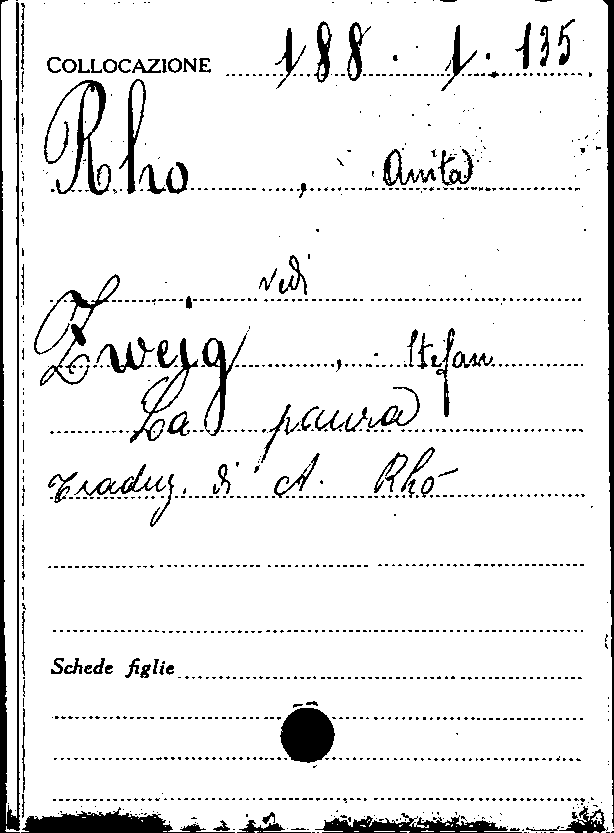 COLLOCAZIONE 188. 1. 135
Rho, Anita
vedi
Zweig, Stefan
La paura
Traduz. di A. Rho
Schede figlie